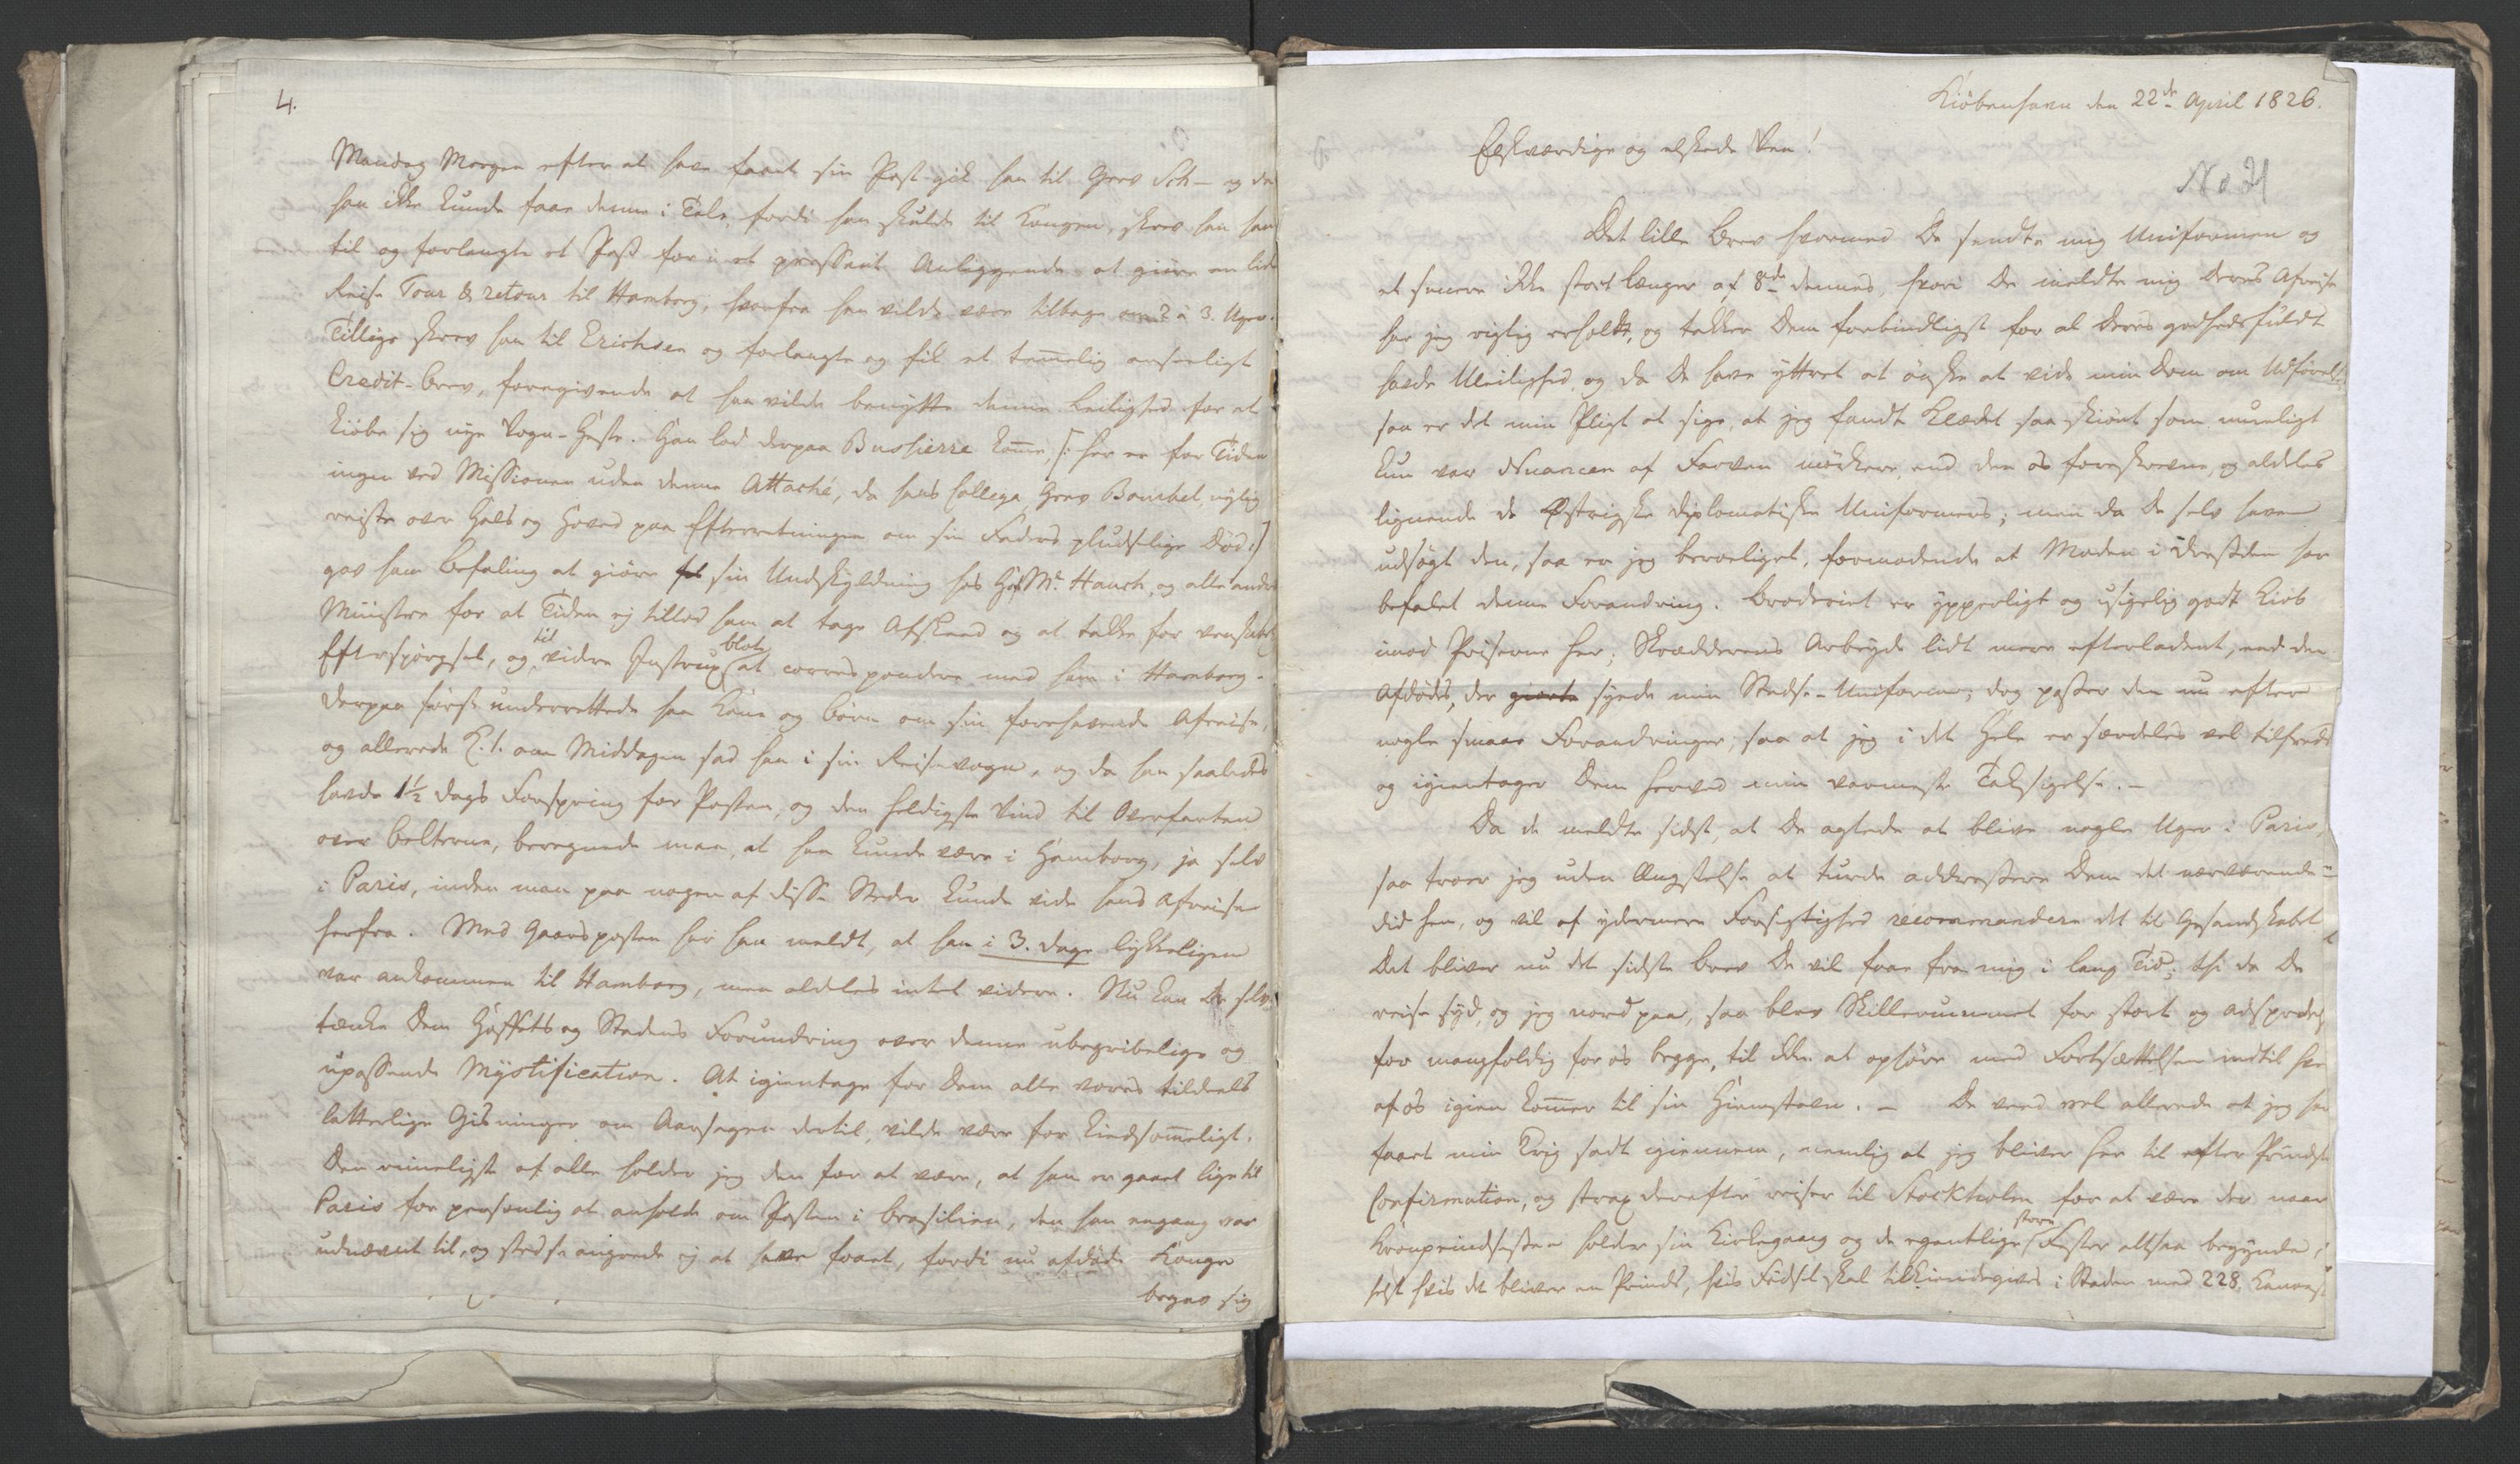 4.
Mandag Morgen efter at have faaet sin Post gik han til Grev Sch- og da
han ikke kunde faae denne i Tale, fordi han skulde til Kongen, skrev han ham
til og forlangte et Pass for i et pressent Anliggende at giöre en liden
Reise Tour & retour til Hamborg, hvorfra han vilde være tilbage om 2 à 3. Uger.
Tillige skrev han til Erichsen og forlangte og fik et temmelig anseeligt
Credit-Brev, foregivende at han vilde benytte denne Leilighed for at
kiöbe sig nye Vogn-Heste. Han lod derpaa Bussierre komme, /: her er for Tiden
ingen ved Missionen uden denne Attaché, da hans Collega Grev Bombel nylig
reiste over Hals og Hoved paa Efterretningen om sin Faders pludselige Död :/
gav ham Befaling at giöre sin Undskyldning hos HofM. Hauch, og alle andre
Ministre for at Tiden ej tillod ham at tage Afskeed og at takke for venskabelig
Efterspörgsel, og til videre blot at correspondere med ham i Hamborg.
Derpaa först underrettede han Kone og Börn om sin forehavende Afreise,
og allerede K. 1. om Middagen sad han i sin Reisevogn, og da han saaledes
havde 1½ Dags Forspring for Posten, og den heldigste Vind til Overfarten
over Belterne, beregnede man, at han kunde være i Hamborg, ja selv
i Paris, inden man paa nogen af disse Steder kunde vide hans Afreise
herfra. Med Gaarsposten har han meldt, at han i 3. Dage lykkeligen
var ankommen til Hamborg, men aldeles intet videre. Nu kan De selv
tænke Dem Hoffets og Stadens Forundring over denne ubegribelige og
upassende Mystification. At igientage for Dem alle vores tildeels
latterlige Gisninger om Aarsagen dertil, vilde være for kiedsommeligt.
Den rimeligste af alle holder jeg den for at være, at han er gaaet lige til
Paris for personlig at anholde om Posten i Brasilien, den han engang var
udnævnt til, og stedse angrede ej at have faaet, fordi nu afdöde Konge
begav sig
Kiöbenhavn den 22de April 1826.
Elskværdige og elskede Ven!
No 21
Det lille Brev hvormed De sendte mig Uniformen og
et senere ikke stort længer af 8de dennes, hvori De meldte mig Deres Afreise
har jeg rigtig erholdt, og takker Dem forbindligst for al Deres godhedsfuldt
havde Uleilighed, og da De have yttret at önske at vide min Dom om Udförelsen
saa er det min Pligt at sige, at jeg fandt Klædet saa skiönt som mueligt
kun var Nuancen af Farven mörkere end den os foreskrevne, og aldeles
lignende de Østrigske diplomatiske Uniformers; men da De selv have
udsögt den, saa er jeg beroeliget, formodende at Moden i Dresden har
befalet denne Forandring. Broderiet er ypperligt og usigelig godt Kiöb
imod Priserne her; Skrædderens Arbeyde lidt mere efterladent, end den
Afdödes, der syede min Stads-Uniform; dog passer den nu efter
nogle smaae Forandringer, saa at jeg i det Hele er særdeles vel tilfreds
og igientager Dem herved min varmeste Taksigelse. —
Da De meldte sidst, at De agtede at blive nogle Uger i Paris,
saa troer jeg uden Ængstelse at turde addressere Dem det nærværende
did hen, og vil af ydermere Forsigtighed recommandere det til Gesandskabet
Det bliver nu det sidste Brev De vil faae fra mig i lang Tid; thi da De
reise syd, og jeg nord paa, saa blev Skillerummet for stort og Adspredelserne
for mangfoldig for os begge, til ikke at ophöre med Fortsættelsen indtil hver
af os igien kommer til sin Hiemstavn. — De veed vel allerede at jeg har
faaet min Krig sadt igiennem, nemlig at jeg bliver her til efter Prindsens
Confirmation, og strax derefter reiser til Stockholm for at være der naar
Kronprindsessen holder sin Kirkegang og de egentlige store Fester altsaa begynde,
helst hvis det bliver en Prinds, hvis Födsel skal tilkiendegives i Staden med 228